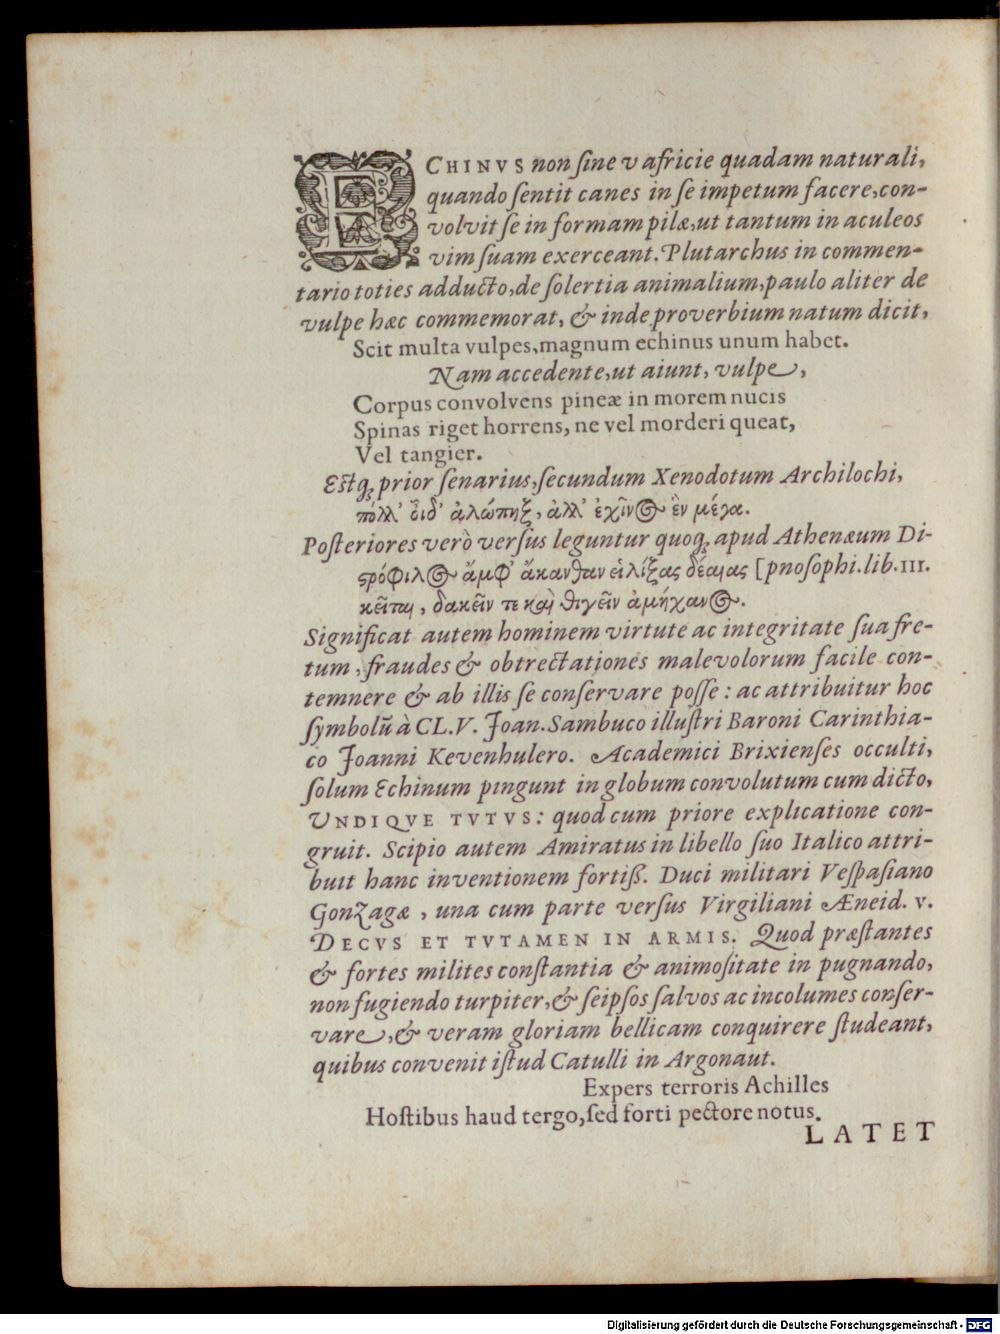 ECHINVS non ſine vafricie quadam naturali,
quando ſentit canes in ſe impetum facere, con-
volvit ſe in formam pilæ, ut tantum in aculeos
vim ſuam exerceant. Plutarchus in commen-
tario toties adducto, de ſolertia animalium, paulo aliter de
vulpe hæc commemorat, & inde proverbium natum dicit,
Scit multa vulpes, magnum echinus unum habet.
Nam accedente, ut aiunt, vulpe,
Corpus convolvens pineæ in morem nucis
Spinas riget horrens, ne vel morderi queat,
Vel tangier.
Estq; prior ſenarius, ſecundum Xenodotum Archilochi,
πόλλ' οἶδ' ἀλώπηξ, ἀλλ' ἐχῖνος ἓν μέγα.
Poſteriores verò verſus leguntur quoq; apud Athenæum Di-
ϛρόφιλος ἄμφ' ἄκανθαν εἱλίξας δέμας [pnoſophi. lib. III.
κεῖται, δακεῖν τε καὶ θιγεῖν ἀμήχανος.
Significat autem hominem virtute ac integritate ſua fre-
tum, fraudes & obtrectationes malevolorum facile con-
temnere & ab illis ſe conſervare poſſe: ac attribuitur hoc
ſymbolũ à CL. V. Joan. Sambuco illuſtri Baroni Carinthia-
co Joanni Kevenhulero. Academici Brixienſes occulti,
ſolum Echinum pingunt in globum convolutum cum dicto,
VNDIQVE TVTVS: quod cum priore explicatione con-
gruit. Scipio autem Amiratus in libello ſuo Italico attri-
buit hanc inventionem fortiß. Duci militari Veſpaſiano
Gonzagæ, una cum parte verſus Virgiliani Æneid. V.
DECVS ET TVTAMEN IN ARMIS. Quod præſtantes
& fortes milites conſtantia & animoſitate in pugnando,
non fugiendo turpiter, & ſeipſos ſalvos ac incolumes conſer-
vare, & veram gloriam bellicam conquirere ſtudeant,
quibus convenit iſtud Catulli in Argonaut.
Expers terroris Achilles
Hoſtibus haud tergo, ſed forti pectore notus.
LATET
Digitalisierung gefördert durch die Deutsche Forschungsgemeinschaft - DFG